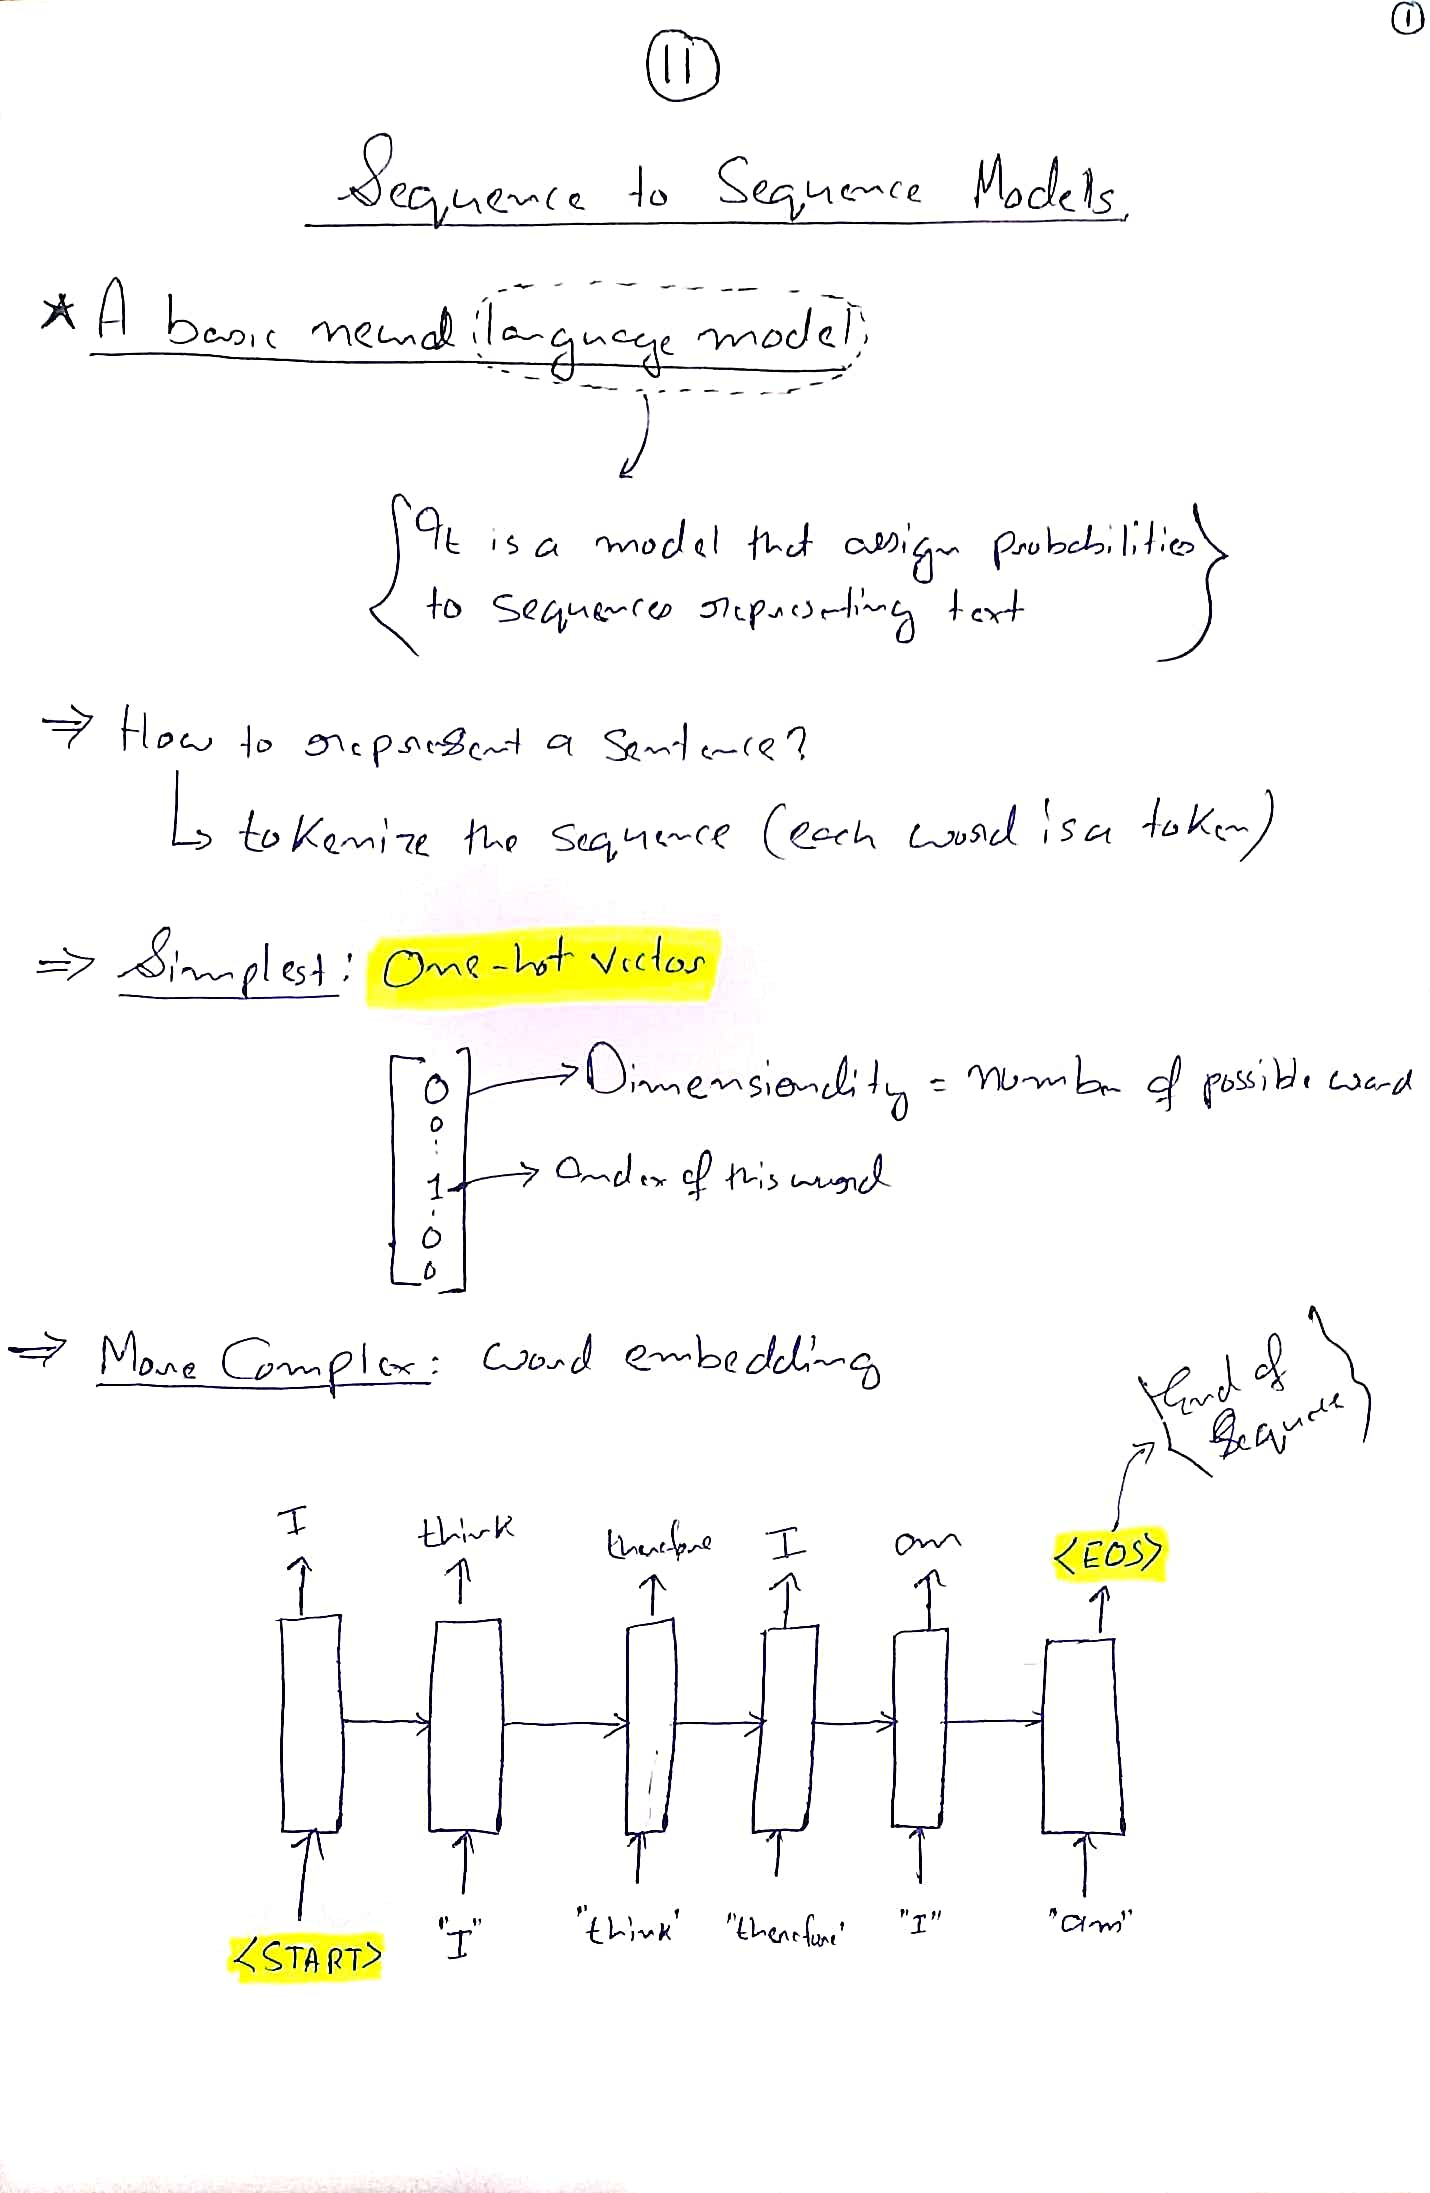 1
11
Sequence to Sequence Models
★ A basic neural language model
{It is a model that assign probabilities
to sequences representing text}
⇒ How to represent a sentence?
↳ tokenize the sequence (each word is a token)
⇒ Simplest: One-hot vector
0 → Dimensionality = number of possible word
0
⋮
1 → Index of this word
⋮
0
0
⇒ More Complex: word embedding
{End of
Sequence}
I think therefore I am <EOS>
<START> "I" "think" "therefore" "I" "am"